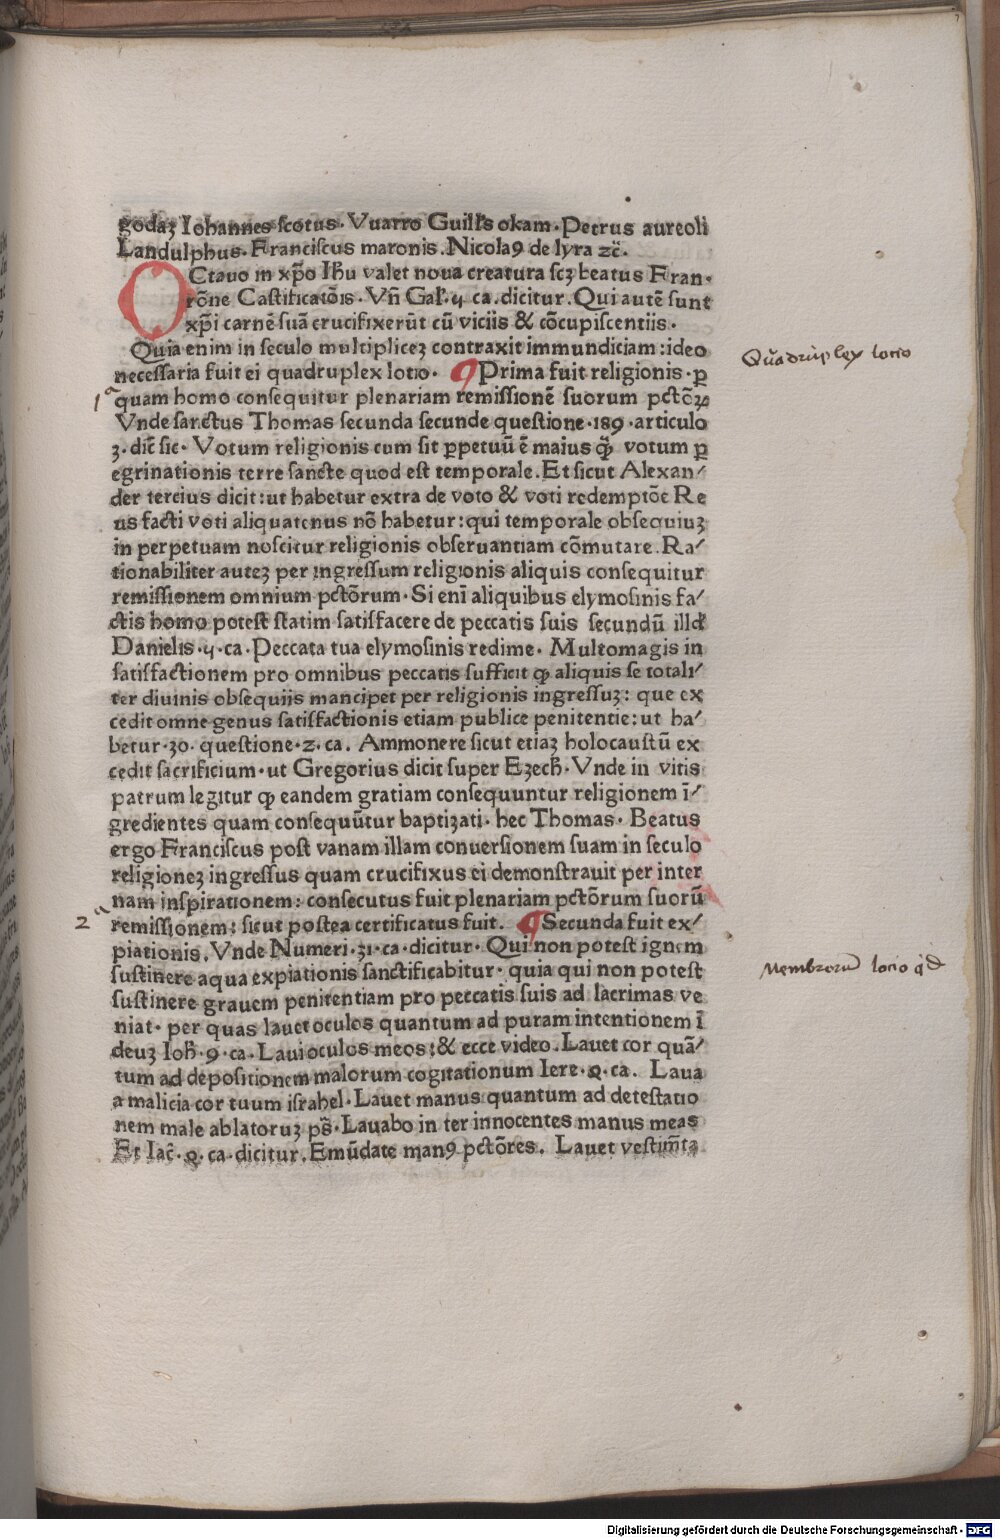 godaʒ Iohannes scotus. Vuarro Guill's okam. Petrus aureoli
Landulphus. Franciscus maronis. Nicolaꝰ de lyra ⁊c̄.
OCtauo in xp̄o Ihū valet noua creatura scʒ beatus Fran-
rōne Castificatōis. Vn̄ Gal'. 5 ca. dicitur. Qui autē sunt
xp̄i carnē suā crucifixerūt cū viciis & cōcupiscentiis.
Quia enim in seculo multipliceʒ contraxit immundiciam: ideo
necessaria fuit ei quadruplex lotio. ¶ Prima fuit religionis. ꝑ
quam homo consequitur plenariam remissionē suorum pctōꝝ
Vnde sanctus Thomas secunda secunde questione .189. articulo
3. dic̄ sic. Votum religionis cum sit ꝑpetuū ē maius q̄ꝫ votum ꝑ
egrinationis terre sancte quod est temporale. Et sicut Alexan/
der tercius dicit: ut habetur extra de voto & voti redemptōe Re
us facti voti aliquatenus nō habetur: qui temporale obsequiuʒ
in perpetuam noscitur religionis obseruantiam cōmutare. Ra/
tionabiliter auteʒ per ingressum religionis aliquis consequitur
remissionem omnium pctōrum. Si enī aliquibus elymosinis fa/
ctis homo potest statim satisfacere de peccatis suis secundū illđ
Danielis .4. ca. Peccata tua elymosinis redime. Multomagis in
satisfactionem pro omnibus peccatis sufficit ꝙ aliquis se totali/
ter diuinis obsequiis mancipet per religionis ingressuʒ: que ex
cedit omne genus satisfactionis etiam publice penitentie: ut ha/
betur .30. questione .2. ca. Ammonere sicut etiaʒ holocaustū ex
cedit sacrificium. ut Gregorius dicit super Eʒech̄. Vnde in vitis
patrum legitur ꝙ eandem gratiam consequuntur religionem ī/
gredientes quam consequūtur baptiʒati. hec Thomas. Beatus
ergo Franciscus post vanam illam conuersionem suam in seculo
religioneʒ ingressus quam crucifixus ei demonstrauit per inter
nam inspirationem: consecutus fuit plenariam pctōrum suorū
remissionem: sicut postea certificatus fuit. ¶ Secunda fuit ex/
piationis. Vnde Numeri .31. ca. dicitur. Qui non potest ignem
sustinere aqua expiationis sanctificabitur. quia qui non potest
sustinere grauem penitentiam pro peccatis suis ad lacrimas ve
niat. per quas lauet oculos quantum ad puram intentionem ī
deuʒ Ioh̄. 9. ca. Laui oculos meos: & ecce video. Lauet cor quā/
tum ad depositionem malorum cogitationum Iere. 4. ca. Laua
a malicia cor tuum israhel. Lauet manus quantum ad detestatio
nem male ablatoruʒ ps̄. Lauabo in ter innocentes manus meas
Et Iac̄. 4. ca. dicitur. Emūdate manꝰ pctōres. Lauet vestim̄ta
Quadruplex lotio
1ᵃ
2ᵃ
Membrorū lotio
Digitalisierung gefördert durch die Deutsche Forschungsgemeinschaft - DFG